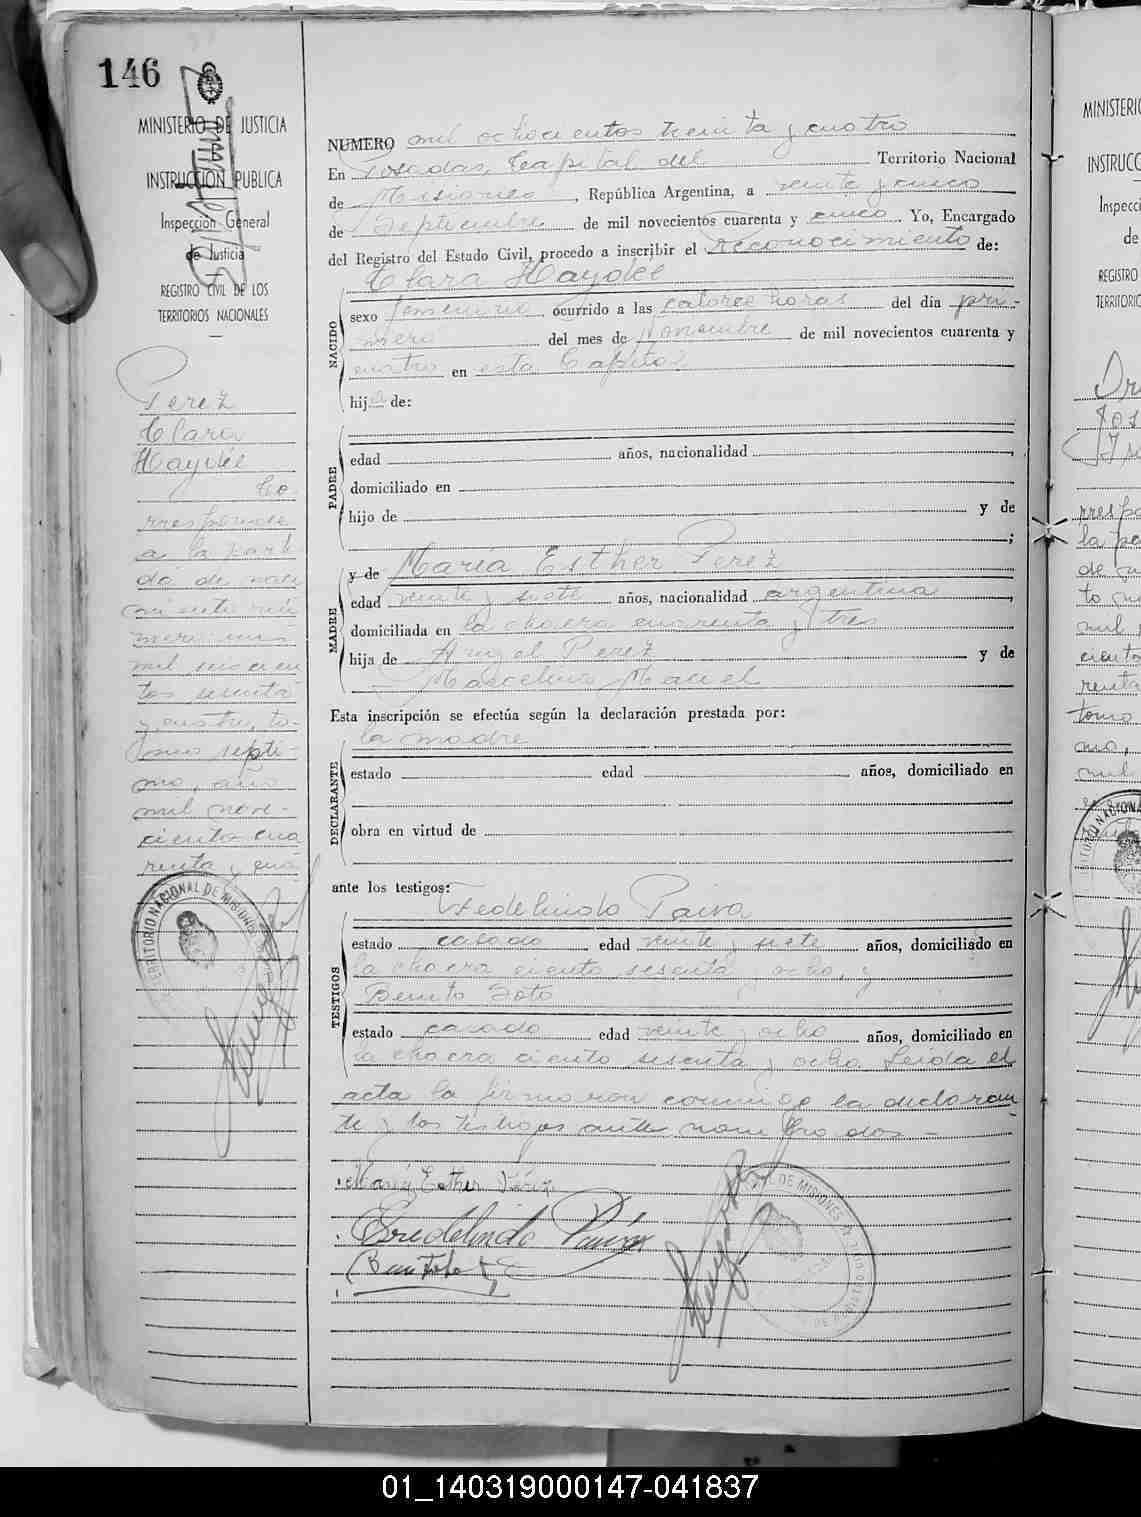 146
MINISTERIO DE JUSTICIA
E
INSTRUCCION PUBLICA
Inspección General
de Justicia
REGISTRO CIVIL DE LOS
TERRITORIOS NACIONALES
Perez
Clara
Haydée
Co-
rresponde
a la parti
da de naci
miento nú
mero
mil seiscien
tos sesenta
y cuatro, to-
mo septi-
mo, año
mil nove-
cientos cua
renta y cua
TERRITORIO NACIONAL DE MISIONES
NUMERO mil ochocientos treinta y cuatro
En Posadas, Capital del Territorio Nacional
de Misiones, República Argentina, a veinte y cinco
de Septiembre de mil novecientos cuarenta y cinco. Yo, Encargado
del Registro del Estado Civil, procedo a inscribir el reconocimiento de:
NACIDO
Clara Haydée
sexo femenino ocurrido a las catorce horas del día pri-
mero del mes de noviembre de mil novecientos cuarenta y
cuatro en esta Capital
hija de:
PADRE
edad años, nacionalidad ,
domiciliado en
hijo de y de
;
MADRE
y de María Esther Perez
edad veinte y siete años, nacionalidad argentina,
domiciliada en la chacra cuarenta y tres
hija de Angel Perez y de
Marcelina Maciel
Esta inscripción se efectúa según la declaración prestada por:
DECLARANTE
la madre
estado edad años, domiciliado en
obra en virtud de
ante los testigos:
TESTIGOS
Fredelindo Paiva
estado casado edad veinte y siete años, domiciliado en
la chacra ciento sesenta y ocho, y
Benito Soto
estado casado edad veinte y ocho años, domiciliado en
la chacra ciento sesenta y ocho. Leida el
acta la firmaron conmigo la declaran
te y los testigos ante nombrados –
María Esther Pérez
Fredelindo Paiva
Benito Soto
DE MISIONES
MINISTERIO
INSTRUCC
Inspecci
de
REGISTRO
TERRITORIOS
rrespo
la pa
de na
to nú
mil
ciento
renta
tomo
mo,
mil
TERRITORIO NACIONAL
01_140319000147-041837